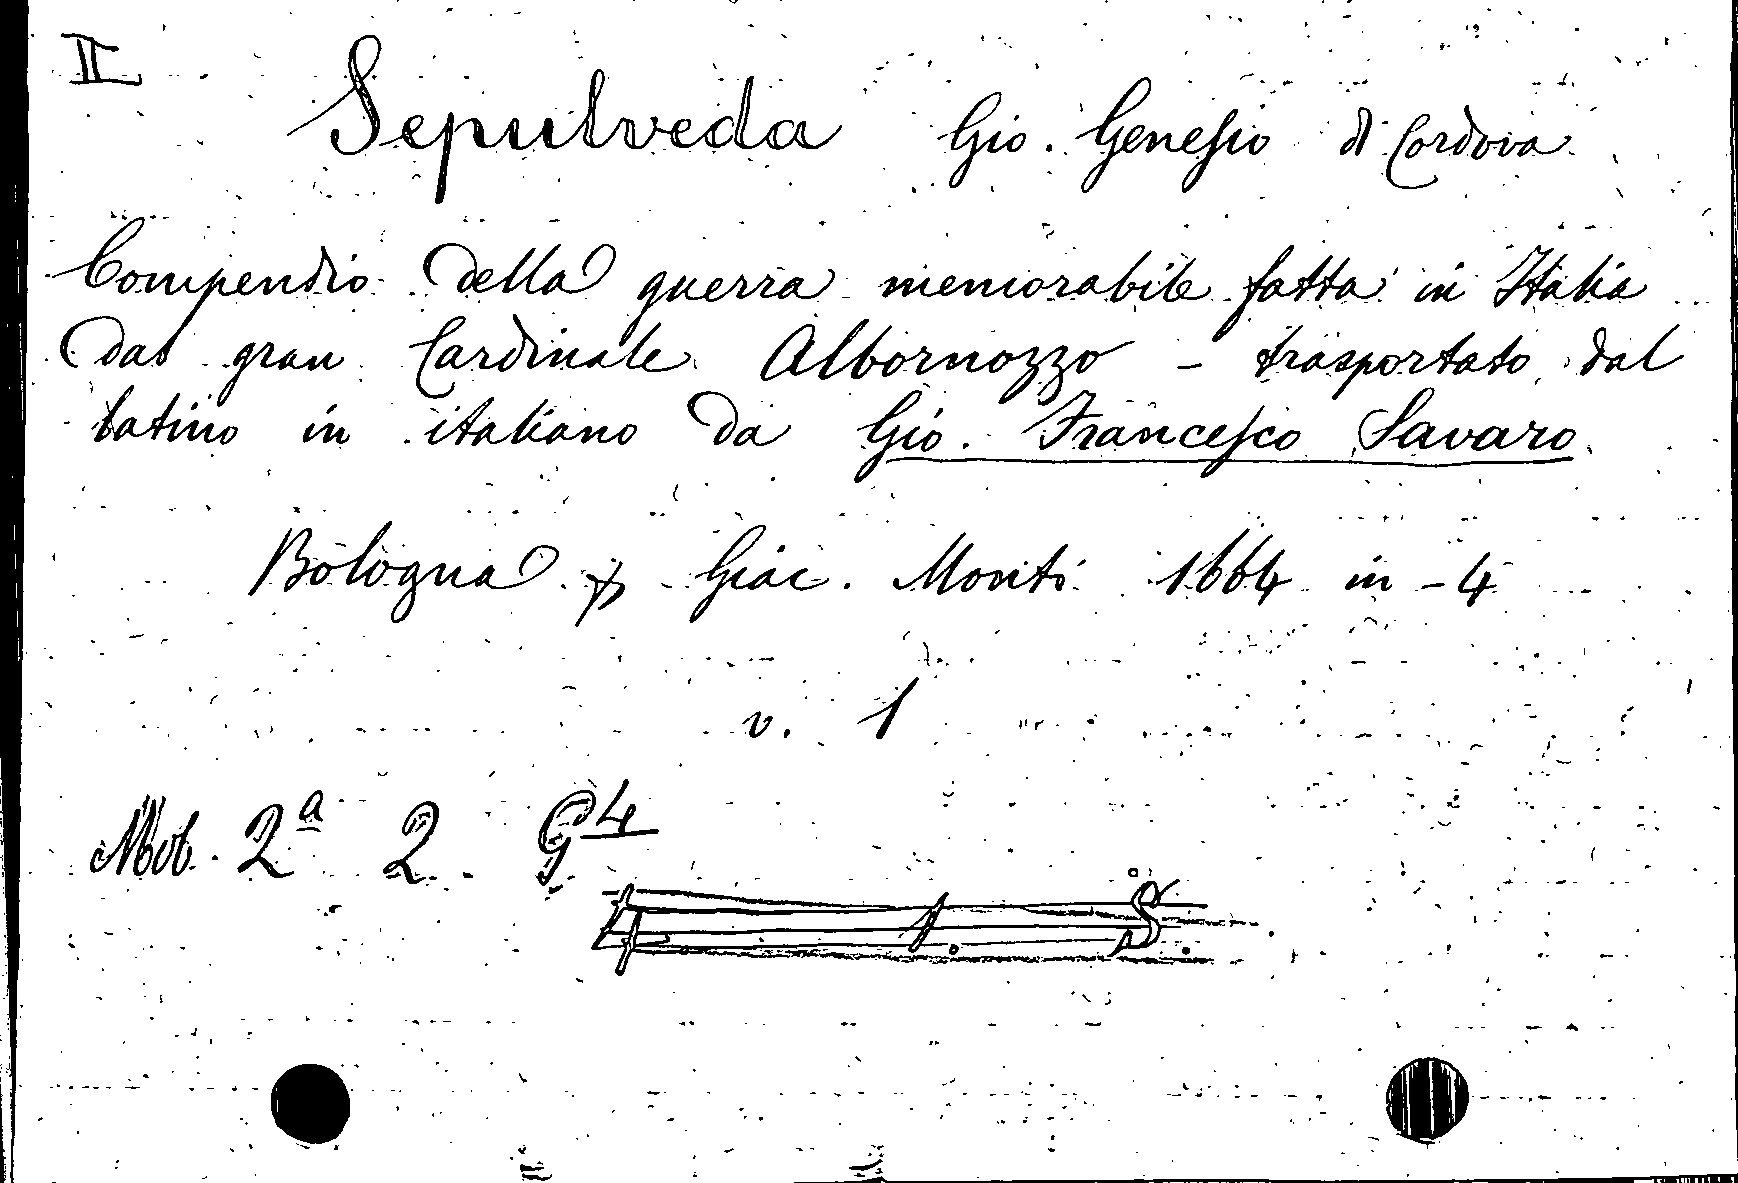 II
Sepulveda Gio. Genesio di Cordova
Compendio della guerra memorabile fatta in Italia
dal gran Cardinale Albornozzo - trasportato dal
latino in italiano da Gio. Francesco Savaro
Bologna p Giac. Monti 1664 in - 4
v. 1
Mob. 2a 2. G4
4 1. S.